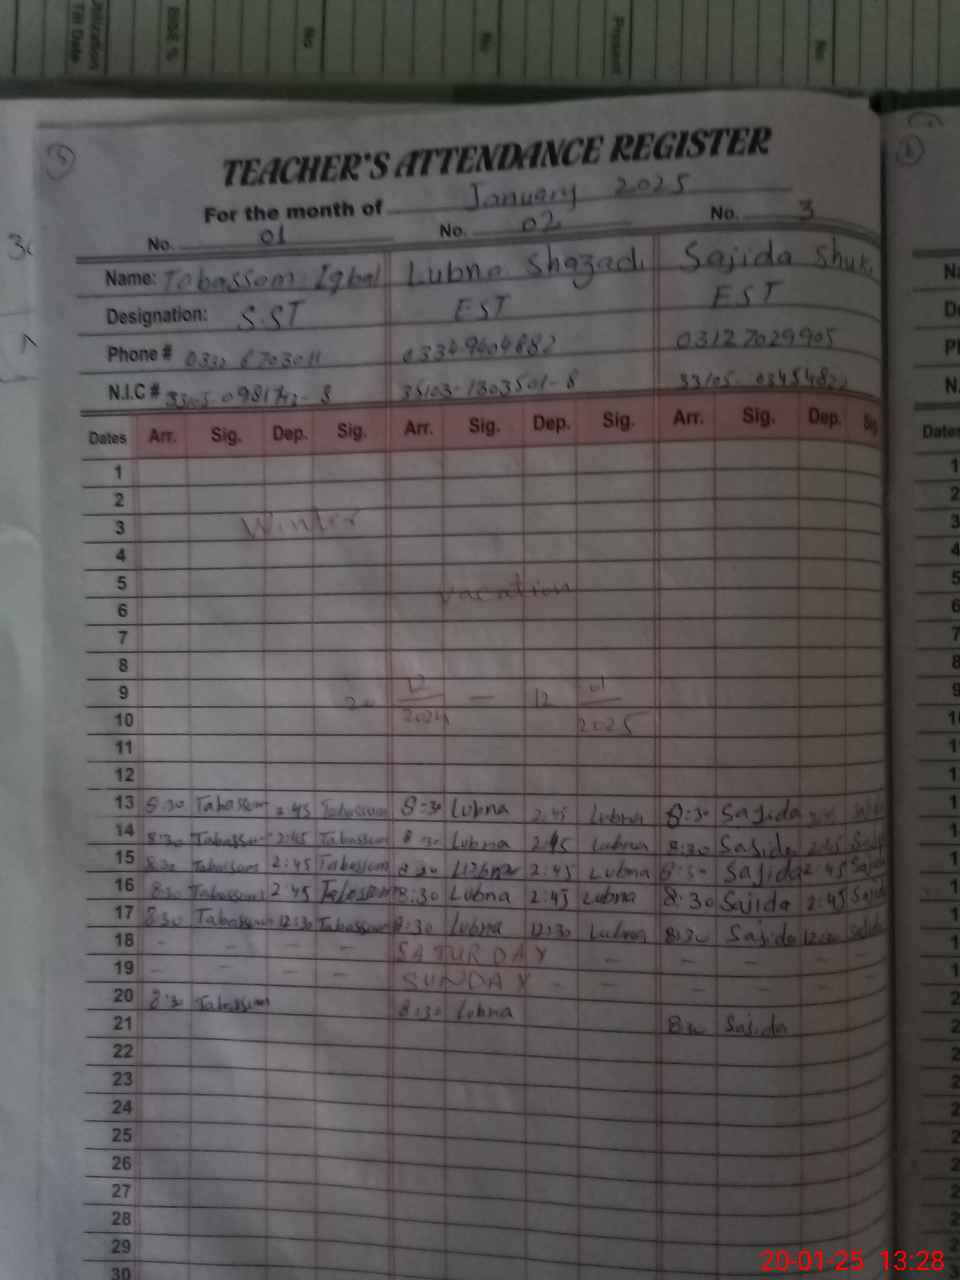 Till Date
RISE %
No
No
Present
No
5
TEACHER'S ATTENDANCE REGISTER
For the month of January 2025
No. 01 No. 02 No. 3
Name: Tabassom Iqbal Lubna Shazadi Sajida
Designation: S.ST EST EST
Phone # 03349604882 03127029905
N.I.C # 35103-1303501-8
Dates Arr. Sig. Dep. Sig. Arr. Sig. Dep. Sig. Arr. Sig. Dep. Sig
1
2
3 Winter
4
5 vacation
6
7
8
9 20 12 — 12 01
10 2024 2025
11
12
13 8:30 Tabassom 2:45 Tabassom 8:30 Lubna 2:45 Lubna 8:30 Sajida
14 8:30 Tabassom 2:45 Tabassom 8:30 Lubna 2:45 Lubna 8:30 Sajida 2:45
15 8:30 Tabassom 2:45 Tabassom 8:30 Lubna 2:45 Lubna 8:30 Sajida 2:45 Sajida
16 8:30 Tabassom 2:45 Tabassom 8:30 Lubna 2:45 Lubna 8:30 Sajida 2:45 Sajida
17 8:30 Tabassom 12:30 Tabassom 8:30 Lubna 12:30 Lubna 8:30 Sajida
18 - - - - SATURDAY - - - - - -
19 - - - - SUNDAY - - - - - - -
20 8:30 Tabassom 8:30 Lubna
21 8:30 Sajida
22
23
24
25
26
27
28
29
30
Dates
20-01-25 13:28